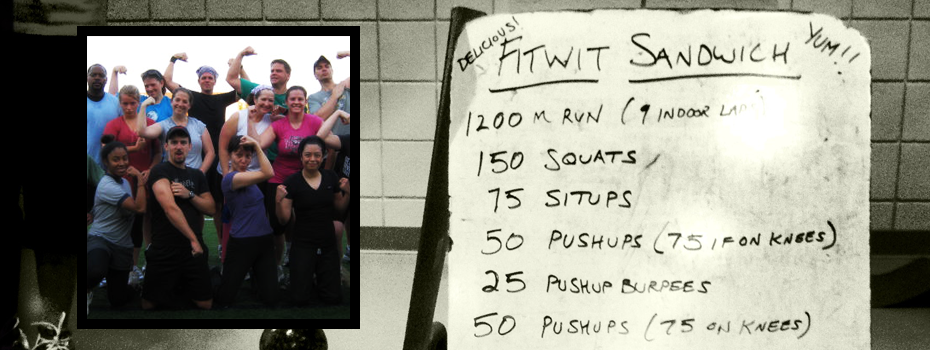 DELICIOUS!
FITWIT SANDWICH
YUM!!
1200 M RUN (9 INDOOR
150 SQUATS
75 SITUPS
50 PUSHUPS (75 IF ON KNEES)
25 PUSHUP BURPEES
50 PUSHUPS (75 ON KNEES)